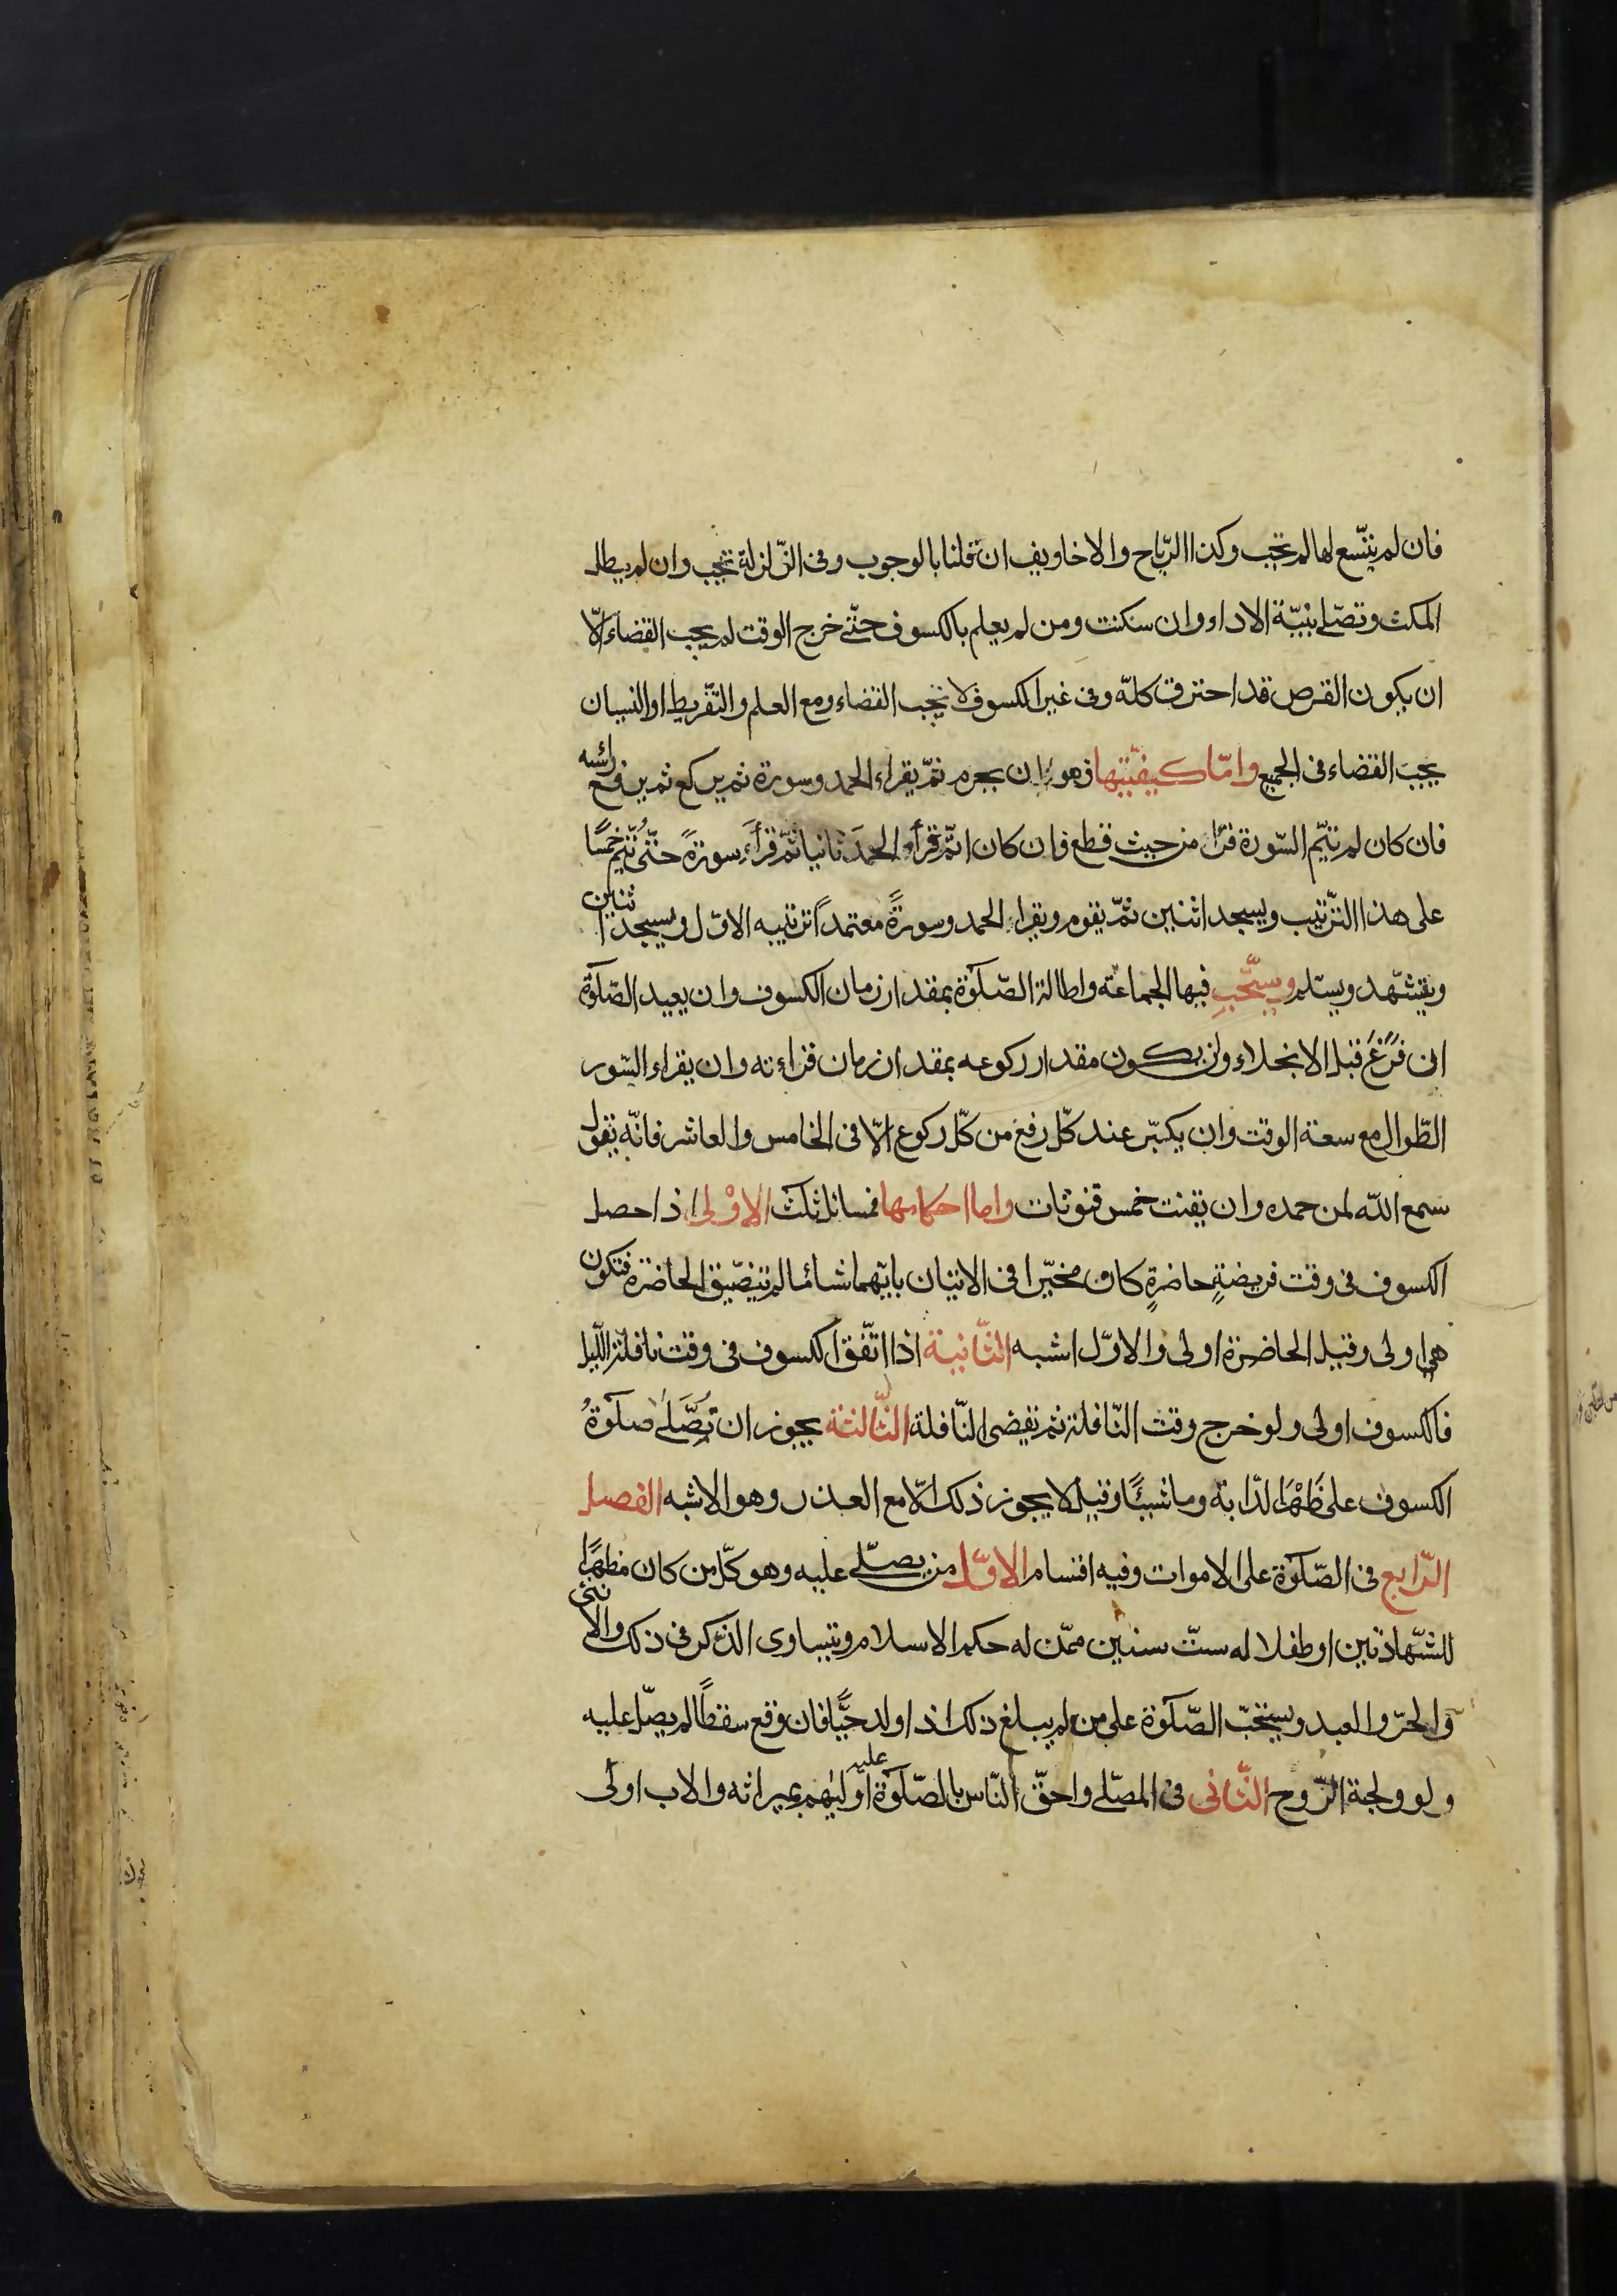 فان لم يتّسع لها لم تجب وكذا الرّياح والاخاويف ان قلنا بالوجوب وفى الزّلزلة تجب وان لم يطل
المكث وتصلّى بنيّة الاداء وان سكنت ومن لم يعلم بالكسوف حتّى خرج الوقت لم يجب القضاء الّا
ان يكون القرص قد احترق كلّه وفى غير الكسوف لا يجب القضاء ومع العلم والتّفريط او النسيان
يجب القضاء فى الجميع وامّا كيفيّتها فهو ان يحرم ثمّ يقراء الحمد وسورة ثم يركع ثم يرفع رأسه
فان كان لم يتمّ السّورة قرأ من حيث قطع وان كان اتمّ قرأ الحمدَ ثانيا ثمّ قرأَ سورةً حتّى يُتمّ خمسًا
على هذا الترّتيب ويسجد اثنين ثمّ يقوم ويقراء الحمد وسورةً معتمداً ترتيبه الاوّل ويسجد اثنين
ويتشهّد ويسلّم ويستحّب فيها الجماعة واطالة الصّلوٰة بمقدار زمان الكسوف وان يعيد الصّلوٰة
ان فَرَغَ قبل الانجلاء وان يكون مقدار ركوعه بمقدار زمان قراءته وان يقراء السّور
الطّوال مع سعة الوقت وان يكبّر عند كلّ رفع من كلّ ركوع الّا فى الخامس والعاشر فانّه يقول
سمع اللّه لمن حمده وان يقنت خمس قنوتات واما احكامها فمسائل ثلث الاوْلى اذا حصل
الكسوف فى وقت فريضةٍ حاضرةٍ كان مخيّرا فى الاتيان بايّهما شاء ما لم تتضيّق الحاضرة فتكون
هى اولى وقيل الحاضرة اولى والاوّل اشبه الثّانية اذا اتّفق الكسوف فى وقت نافلة اللّيل
فالكسوف اولى ولو خرج وقت النّافلة ثم يقضى النّافلة الثّالثة يجوز ان تُصَلّى صلوٰةُ
الكسوف على ظَهْر الدّابة وماشيًا وقيل لا يجوز ذلك الّا مع العذر وهو الاشبه الفصل
الرّابع فى الصّلوٰة على الاموات وفيه اقسام الاوّل من يصلّى عليه وهو كلّ من كان مظهرًا
للشّهادتين او طفلا له ستّ سنين ممّن له حكم الاسلام ويتساوى الذّكر فى ذلك والانثى
والحرّ والعبد ويستحبّ الصّلوٰة على من لم يبلغ ذلك اذا ولد حيًّا فان وقع سقطًا لم يصلّ عليه
ولو ولجة الرّوح الثّانى فى المصلّى واحقّ النّاس بالصّلوٰة عليه اوليٰهم بميراثه والاب اولى